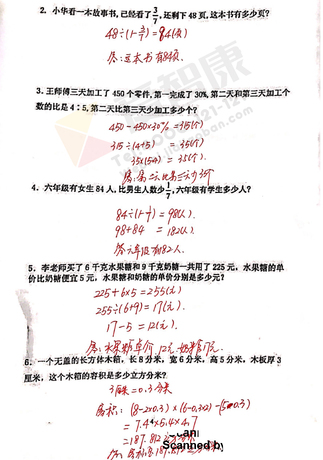 2. 小华看一本故事书,已经看了3/7,还剩下 48 页,这本书有多少页?
48÷(1-3/7)=84(页)
答:这本书有84页
3. 王师傅三天加工了 450 个零件,第一完成了 30%,第二天和第三天加工个
数的比是 4∶5,第二天比第三天少加工多少个?
450-450×30%=315(个)
315÷(4+5)=35(个)
35×(5-4)=35(个).
答:第二天比第三天少35个
4. 六年级有女生 84 人,比男生人数少1/7,六年级有学生多少人?
84÷(1-1/7)=98(人).
98+84=182(人).
5. 李老师买了 6 千克水果糖和 9 千克奶糖一共用了 225 元,水果糖的单
价比奶糖便宜 5 元,水果糖和奶糖的单价分别是多少元?
225+6×5=255(元)
255÷(6+9)=17(元).
17-5=12(元).
答:水果糖单价12元.奶糖17元.
6. 一个无盖的长方体木箱,长 8 分米,宽 6 分米,高 5 分米,木板厚 3
厘米,这个木箱的容积是多少立方分米?
3厘米=0.3分米
容积:(8-2×0.3)×(6-0.3×2)×(5-0.3)
=7.4×5.4×4.7
=187.812
Scanned by